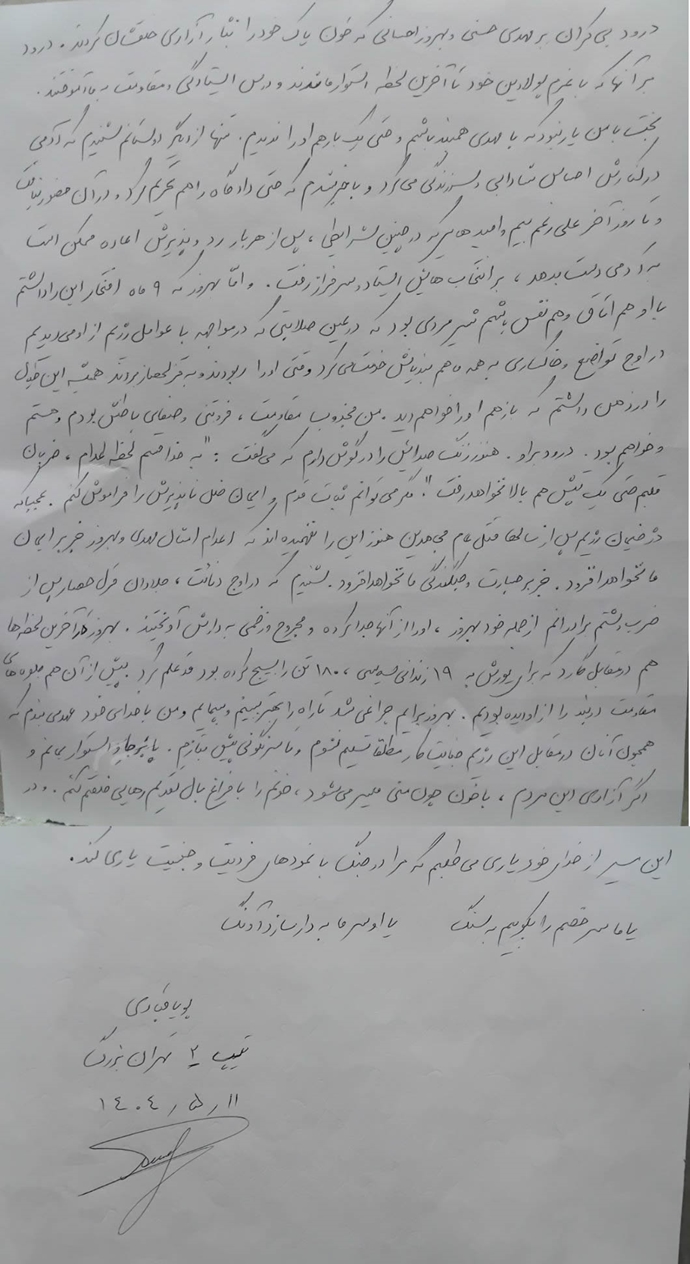 درود بی کران بر مهدی حسنی و بهروز احسانی که خون پاک خود را نثار آزادی خلقشان کردند. درود
بر آنها که با عزم پولادین خود تا آخرین لحظه استوار ماندند و درس ایستادگی و مقاومت به ما آموختند.
بخت با من یار نبود که با مهدی همبند باشم و حتی یک بار هم او را ندیدم. تنها از دیگر دوستانم شنیدم که آدمی
در کنارش احساس شادابی و سرزندگی می کرد و باخبر شدم که حتی دادگاه را هم تحریم کرد و در آن حضور نیافت
و تا روز آخر علی رغم بیم و امیدهایی که در چنین شرایطی، پس از هر بار رد و پذیرش اعاده ممکن است
به آدمی دست بدهد، بر انتخاب هایش ایستاد و سرفراز رفت. و اما بهروز که ۹ ماه افتخار این را داشتم
با او هم اتاق و هم نفس باشم شیرمردی بود که در عین صلابتی که در مواجهه با عوامل رژیم از او می دیدیم
در اوج تواضع و خاکساری به همه ما هم بندیانش خدمت می کرد وقتی او را ربودند و به قزلحصار بردند همیشه این
را در ذهن داشتم که باز هم او را خواهم دید. من مجذوب مقاومت، فروتنی و صفای باطنش بودم و هستم
و خواهم بود. درود بر او. هنوز زنگ صدایش را در گوش دارم که می گفت: "به خدا قسم لحظه اعدام، ضربان
قلبم حتی یک تپش هم بالا نخواهد رفت". مگر می توانم ثبات قدم و ایمان خلل ناپذیرش را فراموش کنم. عجبا که
دژخیمان رژیم پس از سالها قتل عام مجاهدین هنوز این را نفهمیده اند که اعدام امثال مهدی و بهروز جز بر ایمان
ما نخواهد افزود. جز بر جسارت و جنگندگی ما نخواهد افزود. شنیدم که در اوج دنائت، جلادان قزل حصار پس از
ضرب و شتم برادرانم از جمله خود بهروز، او را از آنها جدا کرده و مجروح و زخمی به دارش آویختند. بهروز در آخرین لحظه ها
هم در مقابل گارد که برای یورش به ۱۹ زندانی سیاسی، ۱۸۰ تن را بسیج کرده بود قد علم کرد. پیش از آن هم جلوه های
مقاومت در بند را از او دیده بودیم. بهروز برایم چراغی شد تا راه را بهتر ببینم و بپیمایم و من با خدای خود عهد می بندم که
همچون آنان در مقابل این رژیم جنایت کار مطلقا تسلیم نشوم و تا سرنگونی اش بتازم. پابرجا و استوار بمانم و
اگر آزادی این مردم، با خون چون منی میسر می شود، خونم را با فراغ بال تقدیم رهایی خلقم کنم. و در
این مسیر از خدای خود یاری می طلبم که مرا در جنگ با نمودهای فردیت و جنسیت یاری کند.
یا ما سر خصم را بکوبیم به سنگ یا او سر ما به دار سازد آونگ
پویا قبادی
تیپ ۲ تهران بزرگ
۱۱ ر ۵ ر ۱۴۰۴